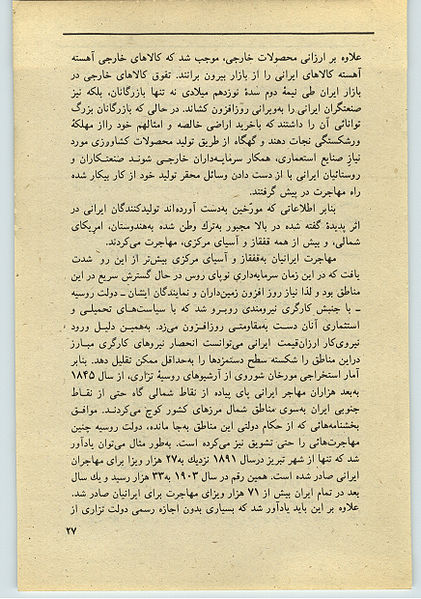 علاوه بر ارزانی محصولات خارجی، موجب شد که کالاهای خارجی آهسته
آهسته کالاهای ایرانی را از بازار بیرون برانند. تفوق کالاهای خارجی در
بازار ایران طی نیمهٔ دوم سدهٔ نوزدهم میلادی نه تنها بازرگانان، بلکه نیز
صنعتگران ایرانی را به‌ویرانی روزافزون کشاند. در حالی که بازرگانان بزرگ
توانائی آن را داشتند که باخرید اراضی خالصه و امثالهم خود رااز مهلکهٔ
ورشکستگی نجات دهند و گهگاه از طریق تولید محصولات کشاورزی مورد
نیاز صنایع استعماری، همکار سرمایه‌داران خارجی شوند صنعتکاران و
روستائیان ایرانی با از دست دادن وسائل محقر تولید خود از کار بیکار شده
راه مهاجرت در پیش گرفتند.
بنابر اطلاعاتی که مورخین به‌دست آورده‌اند تولیدکنندگان ایرانی در
اثر پدیدهٔ گفته شده در بالا مجبور به‌ترك وطن شده به‌هندوستان، امریکای
شمالی، و بیش از همه قفقاز و آسیای مرکزی، مهاجرت می‌کردند.
مهاجرت ایرانیان به‌قفقاز و آسیای مرکزی بیش‌تر از این رو شدت
یافت که در این زمان سرمایه‌داری نوپای روس در حال گسترش سریع در این
مناطق بود و لذا نیاز روز افزون زمین‌داران و نمایندگان ایشان ـ دولت روسیه
ـ با جنبش کارگری نیرومندی روبرو شد که با سیاست‌های تحمیلی و
استثماری آنان دست به‌مقاومتی روزافزون می‌زد. به‌همین دلیل ورود
نیروی‌کار ارزان‌قیمت ایرانی می‌توانست انحصار نیروهای کارگری مبارز
دراین مناطق را شکسته سطح دستمزدها را به‌حداقل ممکن تقلیل دهد. بنابر
آمار استخراجی مورخان شوروی از آرشیوهای روسیهٔ تزاری، از سال ۱۸۴۵
به‌بعد هزاران مهاجر ایرانی پای پیاده از نقاط شمالی گاه حتی از نقـاط
جنوبی ایران به‌سوی مناطق شمال مرزهای کشور کوچ می‌کردند. موافق
بخشنامه‌هائی که از حکام دولتی این مناطق به‌جا مانده، دولت روسیه چنین
مهاجرت‌هائی را حتی تشویق نیز می‌کرده است. به‌طور مثال می‌توان یادآور
شد که تنها از شهر تبریز درسال ۱۸۹۱ نزدیك به‌۲۷ هزار ویزا برای مهاجران
ایرانی صادر شده است. همین رقم در سال ۱۹۰۳ به‌۳۳ هزار رسید و یك سال
بعد در تمام ایران بیش از ۷۱ هزار ویزای مهاجرت برای ایرانیان صادر شد.
علاوه بر این باید یادآور شد که بسیاری بدون اجازه رسمی دولت تزاری از
۲۷